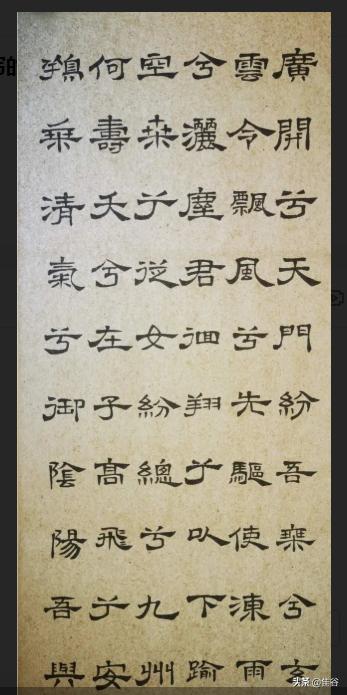 廣開兮天門紛吾乘兮玄
雲令飄風兮先驅使涷雨
兮灑塵君徊翔兮以下踰
空桒兮從女紛總兮九州
何壽夭兮在予高飛兮安
乘清氣兮御陰陽吾與
的
头条 @佳谷